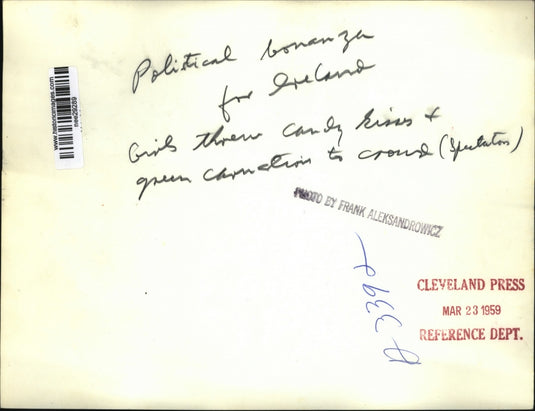 Political bonanza
for Ireland
Girls threw candy kisses +
green carnation to crowd (Spectators)
www.historicimages.com
PHOTO BY FRANK ALEKSANDROWICZ
CLEVELAND PRESS
MAR 23 1959
REFERENCE DEPT.